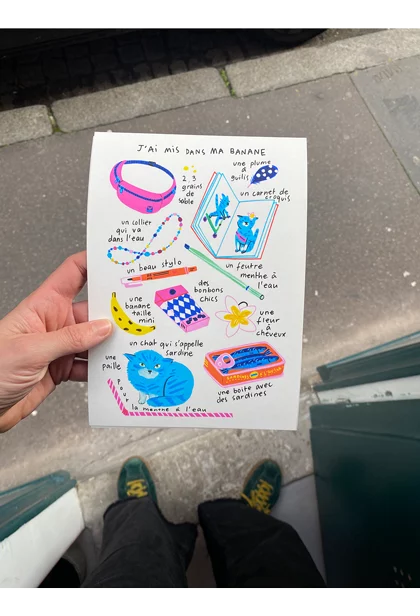 J'AI MIS DANS MA BANANE
une plume
à
guilis
2, 3
grains
de
sable
un carnet de
croquis
un collier
qui va
dans l'eau
un beau stylo
un feutre
menthe à
l'eau
des
bonbons
chics
une
banane
taille
mini
une
fleur
à
cheveux
un chat qui s'appelle
sardine
une
paille
pour
la menthe à l'eau
une boite avec
des sardines